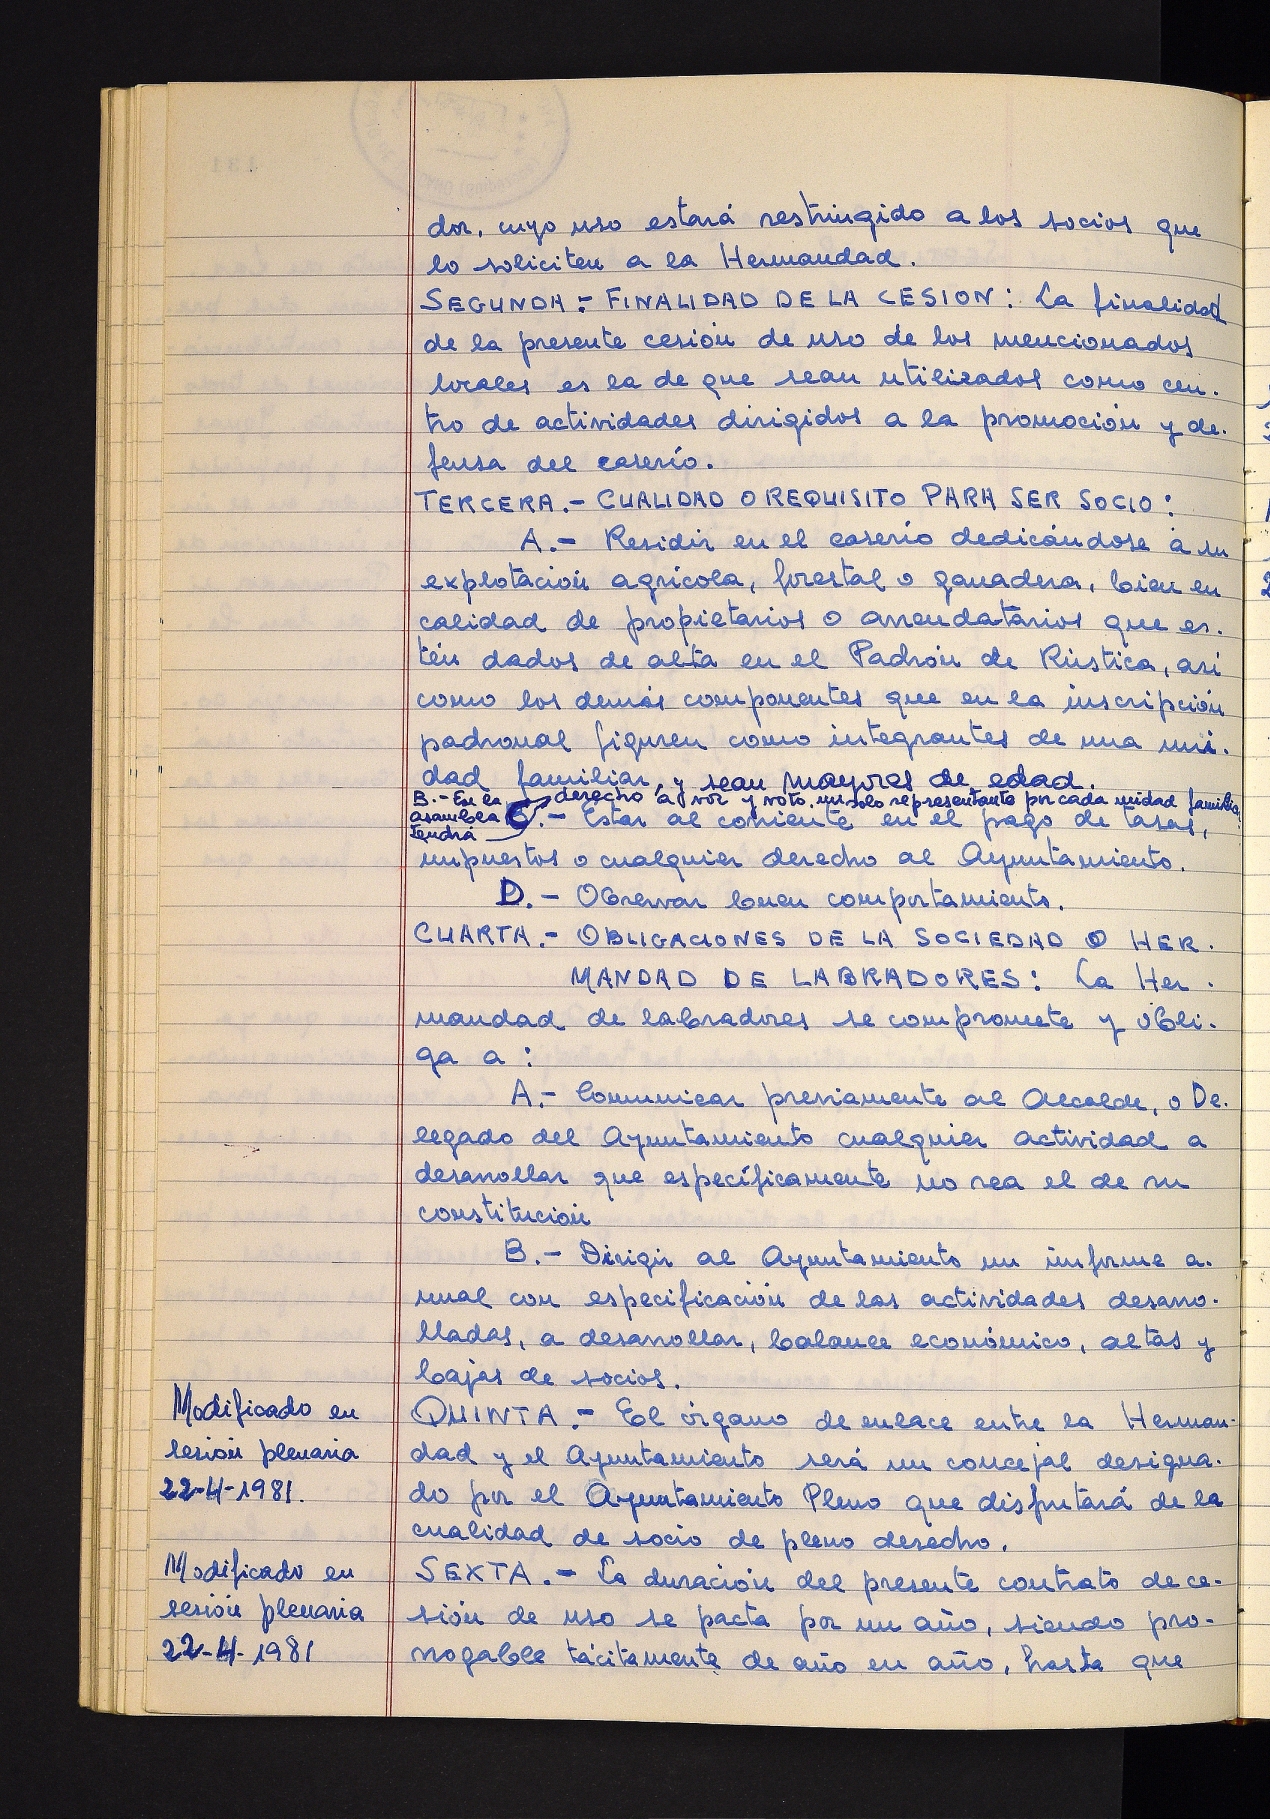 dor, cuyo uso estará restringido a los socios que
lo soliciten a la Hermandad.
SEGUNDA.- FINALIDAD DE LA CESION: La finalidad
de la presente cesión de uso de los mencionados
locales es la de que sean utilizados como cen-
tro de actividades dirigidos a la promoción y de-
fensa del caserío.
TERCERA.- CUALIDAD O REQUISITO PARA SER SOCIO:
A.- Residir en el caserío dedicándose a su
explotación agrícola, forestal o ganadera, bien en
calidad de propietarios o arrendatarios que es-
tén dados de alta en el Padrón de Rústica, así
como los demás componentes que en la inscripción
padronal figuren como integrantes de una uni-
dad familiar, y sean mayores de edad.
B.- En la asamblea tendrá derecho a voz y voto un solo representante por cada unidad familiar.
C.- Estar al corriente en el pago de tasas,
impuestos o cualquier derecho al Ayuntamiento.
D.- Observar buen comportamiento.
CUARTA.- OBLIGACIONES DE LA SOCIEDAD O HER-
MANDAD DE LABRADORES: La Her-
mandad de labradores se compromete y obli-
ga a:
A.- Comunicar previamente al Alcalde, o De-
legado del Ayuntamiento cualquier actividad a
desarrollar que específicamente no sea el de su
constitución
B.- Dirigir al Ayuntamiento un informe a-
nual con especificación de las actividades desarro-
lladas, a desarrollar, balance económico, altas y
bajas de socios.
Modificado en
sesión plenaria
22-4-1981.
QUINTA.- El órgano de enlace entre la Herman-
dad y el Ayuntamiento será un concejal designa-
do por el Ayuntamiento Pleno que disfrutará de la
cualidad de socio de pleno derecho.
Modificado en
sesión plenaria
22-4-1981
SEXTA.- La duración del presente contrato de ce-
sión de uso se pacta por un año, siendo pro-
rrogable tácitamente de año en año, hasta que